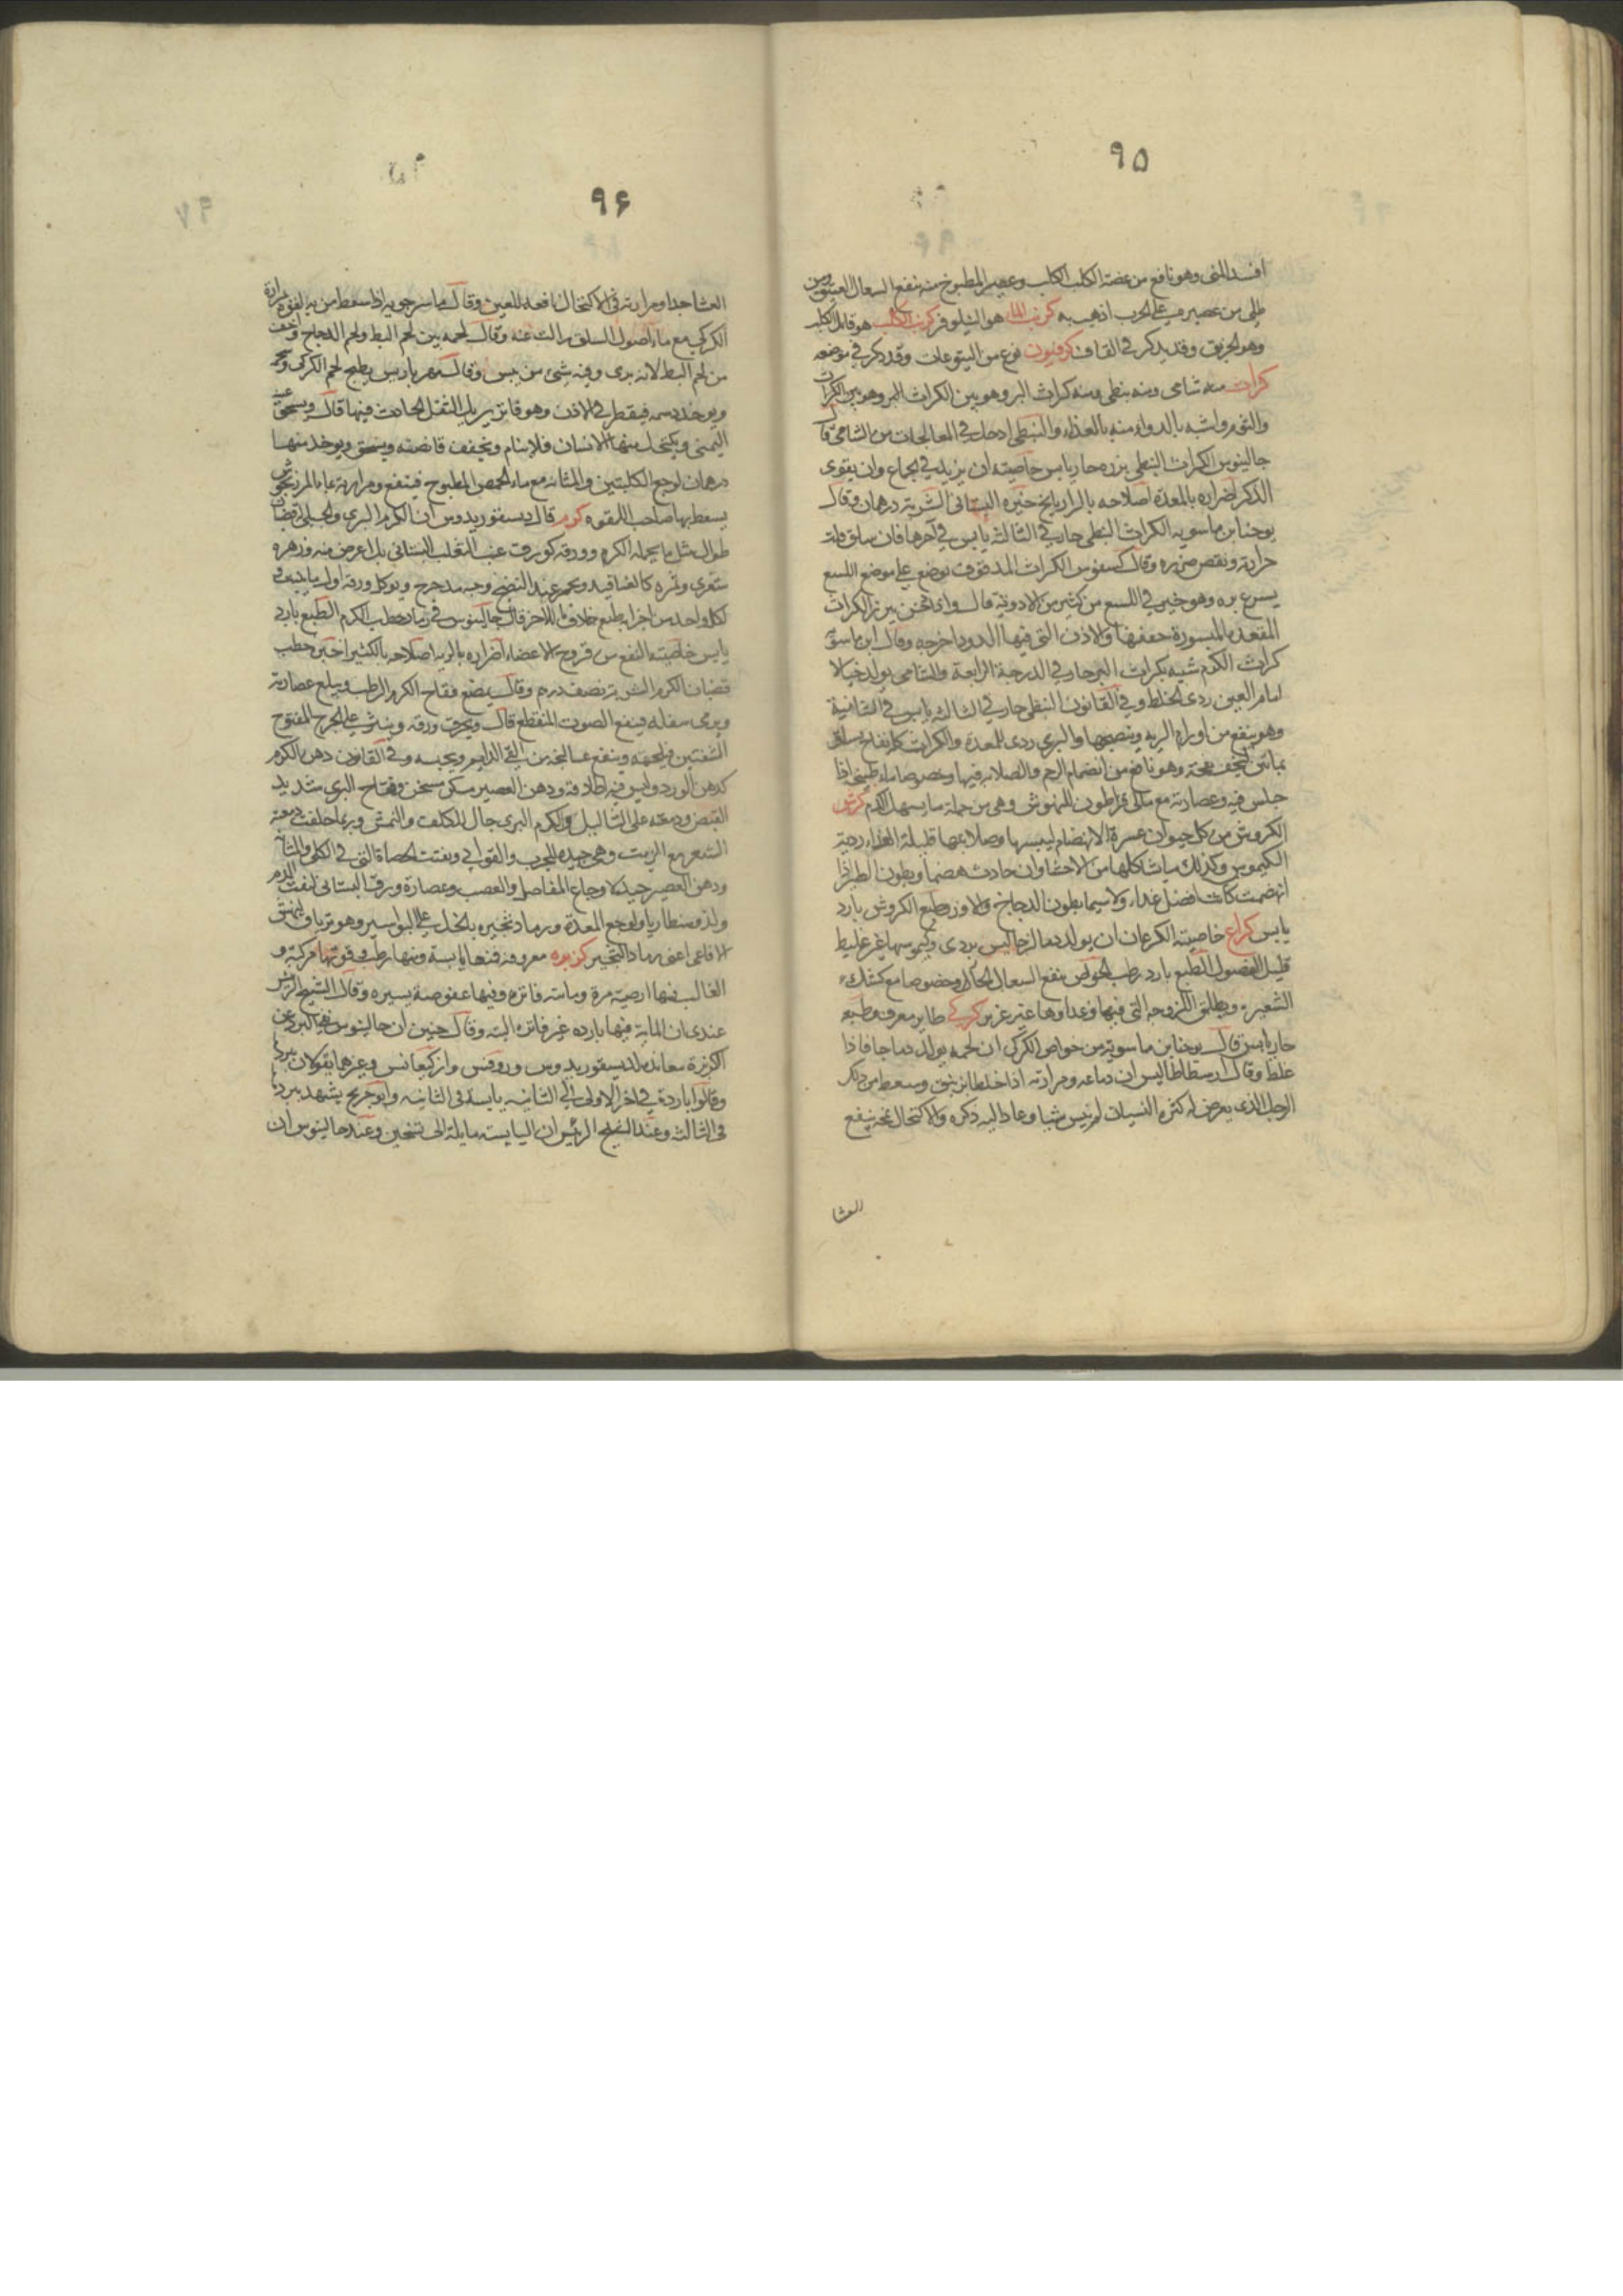 ٩٥
افسد المنى وهو نافع من عضة الكلب الكلب وعصير المطبوخ منه ينفع السعال العتيق ومن
طلى من عصيره على الجرب اذهب به كرنب الماء هو النيلوفر كرنب الكلب هو قاتل الكلب
وهو الخربق وقد يذكر في القاف كرفيون نوع من اليتوعات وقد ذكر في موضعه
كراث منه شامى ومنه نبطى ومنه كراث البر وهو بين الكراث البر وهو بين الكراث
والثوم واشبه بالدواء منه بالغذاء والنبطى ادخل في المعالجات من الشامى قال
جالينوس الكراث النبطى بزره حار يابس خاصيته ان يزيد في الجماع وان يقوى
الذكر اضراره بالمعدة اصلاحه بالرازيانج خيره البستانى الشربة درهمان وقال
يوحنا بن ماسويه الكراث النبطى حار في الثالثة يابس في آخرها فان سلق قلت
حرارته ونقص ضرره وقال كسفوس الكراث المدقوق يوضع على موضع اللسع
يسرع برءه وهو خير في اللسع من كثير من الادوية قال وان بخر بزر الكراث
المقعدة المبسورة جففها والاذن التى فيها الدود اخرجه وقال ابن ماسويه
كراث الكرم شبيه بكراث البر حار في الدرجة الرابعة والشامى يولد خيالا
امام العين ردى الخلط وفي القانون النبطى حار في الثالثة يابس في الثانية
وهو ينفع من اورام الرية وينضجها والبرى ردى للمعدة والكراث كله نفاخ
وهو نافع من انضمام الرحم والصلابة فيها وخصوصا ماء طبيخه اذا
جلس فيه وعصارته مع للمنهوش وهى من جملة ما يسهل الدم كرش
الكروش من كل حيوان عسرة الانهضام ليبسها وصلابتها قليلة الغذاء ردية
الكيموس وكذلك كلها من الاحشا وان جادت هضما وبطون الطير اذا
انهضمت كانت افضل غداء ولا سيما بطون الدجاج والاوز وطبع الكروش بارد
يابس كراع خاصيته الكرعان ان يولد دما لزجا ليس بردى وكيموسها غير غليظ
قليل الفضول الطبع بارد رطب الخواص ينفع السعال الحار وخصوصا مع كشك
الشعير ويطلق اللزوجة التى فيها وغداوها غير غزير كركى طاير معروف طبعه
حار يابس قال يوحنا بن ماسويه من خواص الكركى ان لحمه يولد دما جافا ذا
غلظ وقال ارسطاطاليس ان دماغه ومرارته اذا خلطا بزنبق وسعط من ذلك
الرجل الذى يعرض له كثرة النسيان لم ينس شيا وعاد اليه ذكره والاكتحال بمخه ينفع
العشا
٩۶
العشا جدا ومرارته في الاكتحال نافعة للعين وقال ماسرجويه اذا سعط من به لقوة مرارة
الكركى مع ماء اصول السلق زالت عنه وقال لحمه بين لحم البط ولحم الدجاج واخف
من لحم البط لانه برى وفيه شئ من يبس وقال مهرياريس يطبخ لحم الكركى ومخه
ويوخذ دسمه فيقطر في الاذن وهو فاتر يزيل الثقل الحادث فيها قال ويسحق عينه
اليمنى ويكتحل منها الانسان فلا ينام وتجفف قانصته وتسحق ويوخذ منها
درهمان لوجع الكليتين والمثانة مع ماء الحمص المطبوخ فينفع ومرارته بماء المرزنجوش
يسعط بها صاحب اللقوه كرم قال ديسقوريدوس ان الكرم البرى والجبلى له قضبان
طوال مثل ما يحمله الكرم وورقه كورق عنب الثعلب البستانى بل اعرض منه وزهره
شعرى وثمره كالعناقيد ويحمر عند النضج وحبه مدحرج ويوكل ورقه اول ما ينبت و
لكل واحد من اجزايه طبع خلاف الاخر قال جالينوس في رماد حطب الكرم الطبع بارد
يابس خاصيته النفع من قروح الاعضاء اضراره بالريه اصلاحه بالكثيرا خيره حطب
قضبان الكرم الشربة نصف درهم وقال يمضغ فقاح الكرم الرطب ويبلع عصارته
ويرمى سفله فينفع الصوت المنقطع قال ويحرق ورقه وينثر على الجرح المفتوح
الشفتين فيلحمه وينفع عساليجه من القى الدايم ويحبسه وفي القانون دهن الكرم
كدهن الورد وليس فيه اطلاقه ودهن العصير مسكن مسخن وفقاح البرى شديد
القبض ودمعته على الثاليل والكرم البرى جال للكلف والنمش وربما حلقت دمعته
الشعر مع الزيت وهى جيده للجرب والقوابى ويفتت الحصاة التى في الكلى والمثانة
ودهن العصير جيد لاوجاع المفاصل والعصب وعصارة ورق البستانى لنفث الدم
ولدوسنطاريا ولوجع المعدة ورماد ثجيره بالخل على البواسير وهو ترياق لنهش
الافاعى اعنى رماد الثجير كزبره معروفة فمنها يابسة ومنها رطب وقوتها مركبة و
الغالب فيها ارضية مرة ومايية فاترة وفيها عفوصة يسيره وقال الشيخ الرئيس
عندى ان المايية فيها بارده غير فاترة البتة وقال حنين ان جالينوس نفى البرد عن
الكزبرة معاندة لديسقوريدوس وروفس واركيغانس وغيرهما يقولان ببردها
وقالوا باردة في اخر الاولى الى الثانيه يابسة في الثانيه وابو جريج يشهد ببردها
في الثالثة وعند الشيخ الرئيس ان اليابسة مايلة الى تسخين وعند جالينوس ان
٩٧